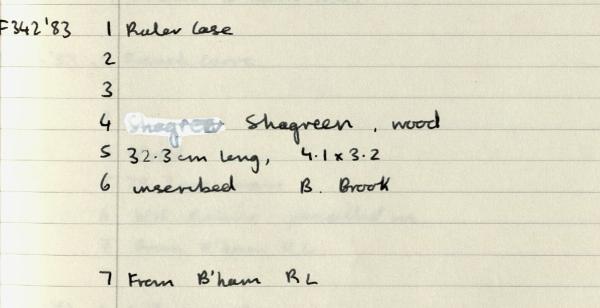 F342'83 1 Ruler Case
2
3
4 Shagreen Shagreen, wood
5 32.3 cm long, 4.1 x 3.2
6 inscribed B. Brook
7 From B'ham RL